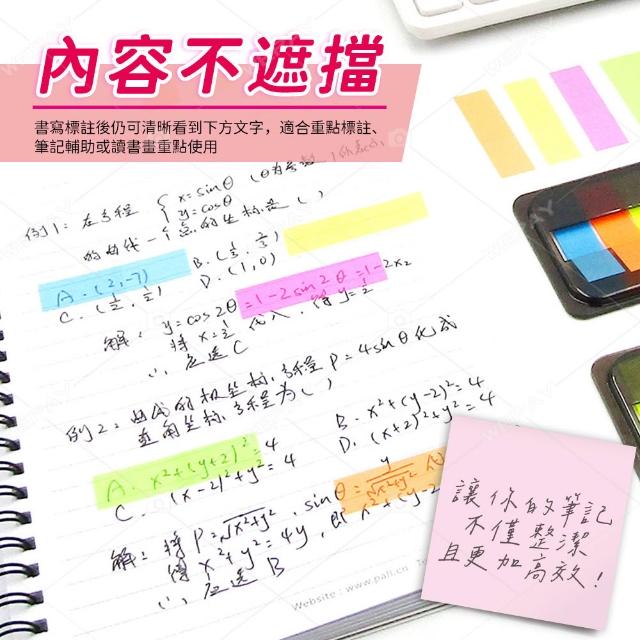 內容不遮擋
書寫標註後仍可清晰看到下方文字，適合重點標註、
筆記輔助或讀書畫重點使用
例1：在方程 { x=sinθ
y=cosθ
A.(2,-7)
B.(1/3, 2/3)
C.(1/2, 1/2)
D.(1,0)
解：y=cos2θ=1-2sin2θ=1-2x2
将x=1/2代入，得y=1/2
∴应选C
例2：曲线的极坐标方程P=4sinθ化成
直角坐标方程为( )
A. x²+(y+2)²=4
B. x²+(y-2)²=4
C. (x-2)²+y²=4
D. (x+2)²+y²=4
解：将P=√x²+y², sinθ=y/√x²+y²代
得x²+y²=4y, 即x²+(y-2
∴应选B
Website：www.pali.cn
讓你的筆記
不僅整潔
且更加高效！